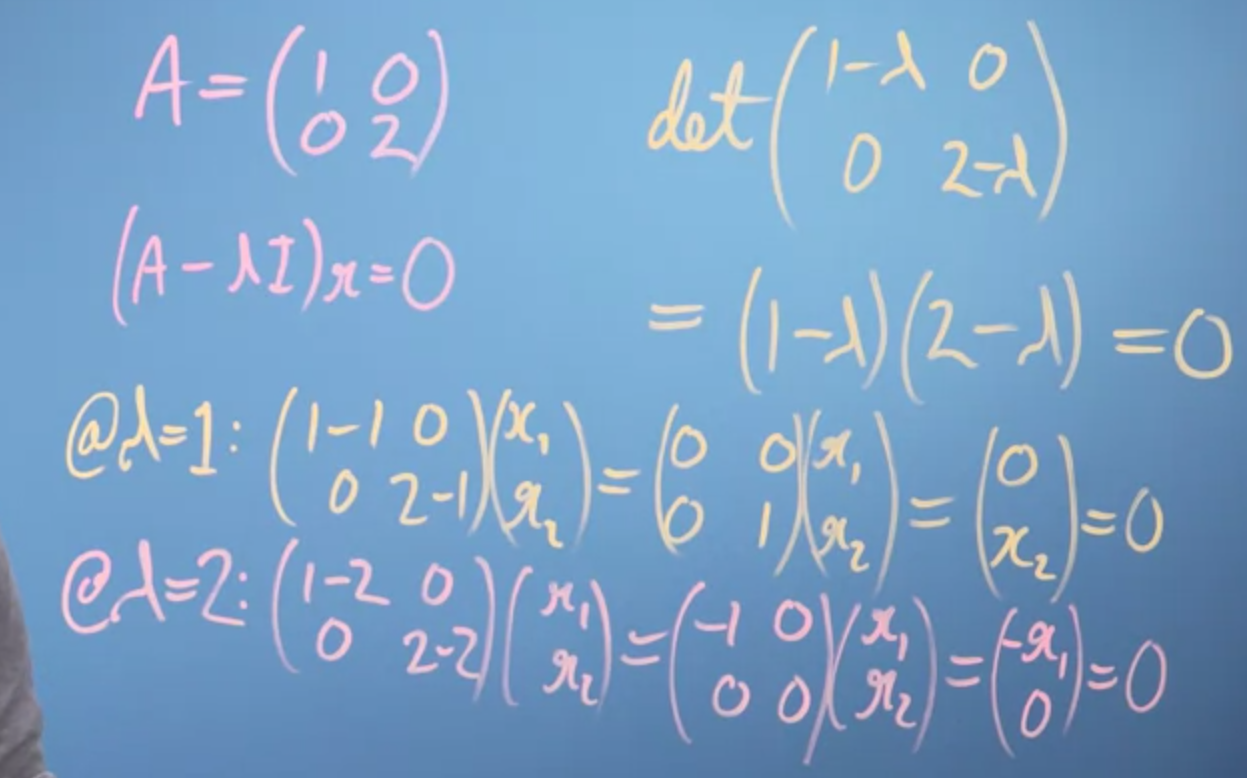 A = (1 0; 0 2)
(A - λI)x = 0
det(1-λ 0; 0 2-λ)
= (1-λ)(2-λ) = 0
@λ=1: (1-1 0; 0 2-1)(x₁; x₂) = (0 0; 0 1)(x₁; x₂) = (0; x₂) = 0
@λ=2: (1-2 0; 0 2-2)(x₁; x₂) = (-1 0; 0 0)(x₁; x₂) = (-x₁; 0) = 0